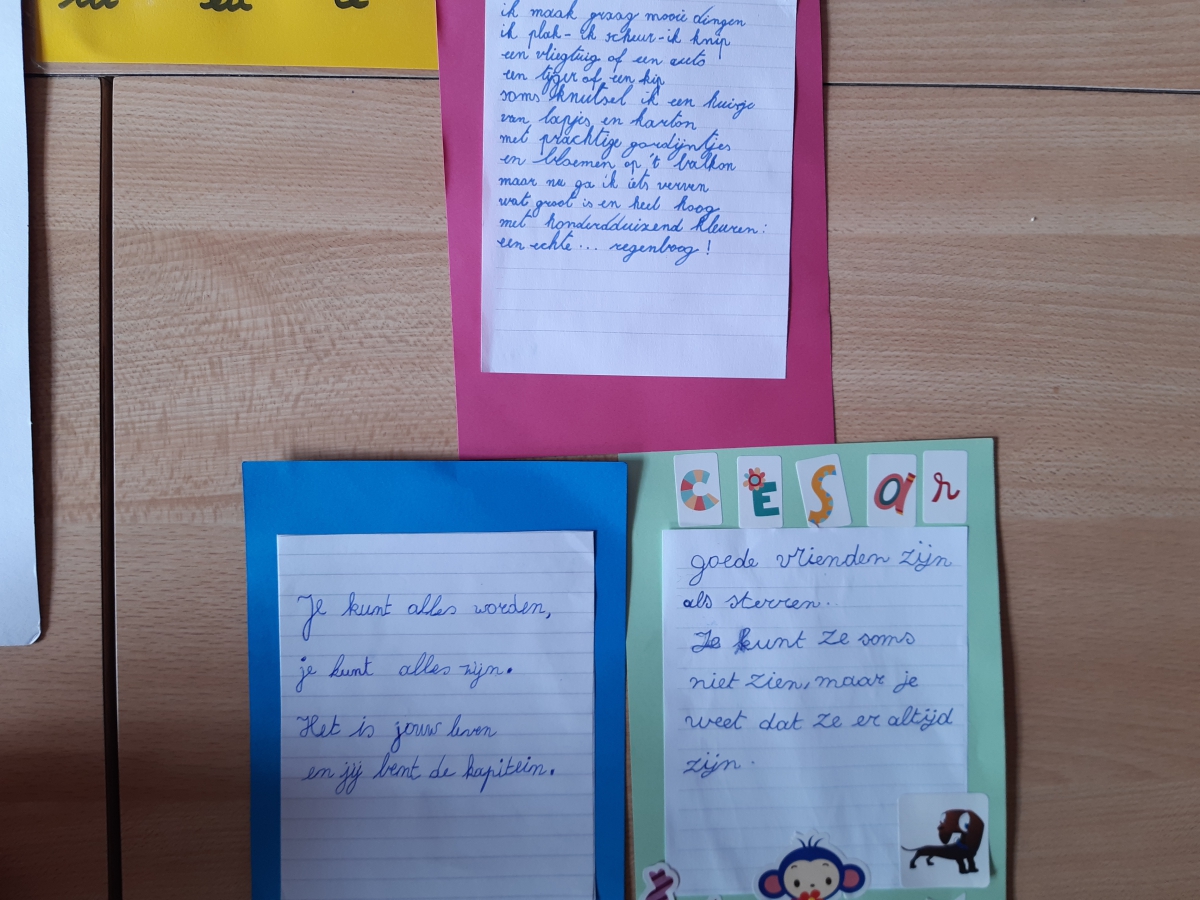 ik maak graag mooie dingen
ik plak - ik scheur - ik knip
een vliegtuig of een auto
een tijger of een kip
soms knutsel ik een huisje
van lapjes en karton
met prachtige gordijntjes
en bloemen op 't balkon
maar nu ga ik iets verven
wat groot is en heel hoog
met honderdduizend kleuren:
een echte ... regenboog!
Je kunt alles worden,
je kunt alles zijn.
Het is jouw leven
en jij bent de kapitein.
CESar
goede vrienden zijn
als sterren..
Je kunt ze soms
niet zien, maar je
weet dat ze er altijd
zijn.